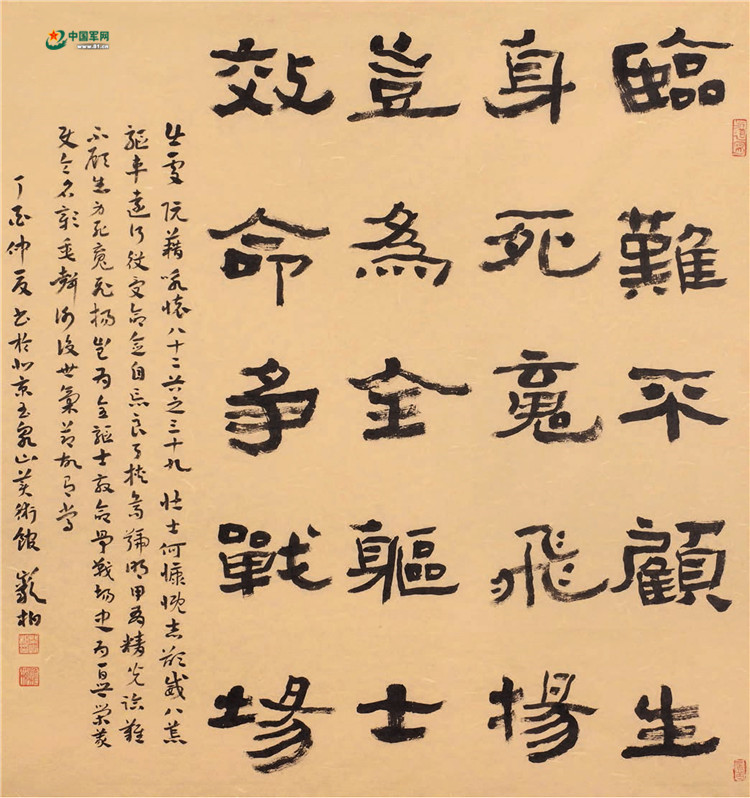 中国军网
www.81.cn
臨難不顧生
身死魂飛揚
豈為全軀士
效命爭戰場
阮藉咏懷八十二首之三十九 壯士何慷慨志欲威八荒
驅車遠行役受命念自忘良弓挾烏號明甲有精光臨難
不顧生身死魂飛揚豈為全軀士效命爭戰場忠為百世榮義
使令名彰垂聲謝後世氣節故有常
丁酉仲夏書於北京玉泉山美術館 嚴柏